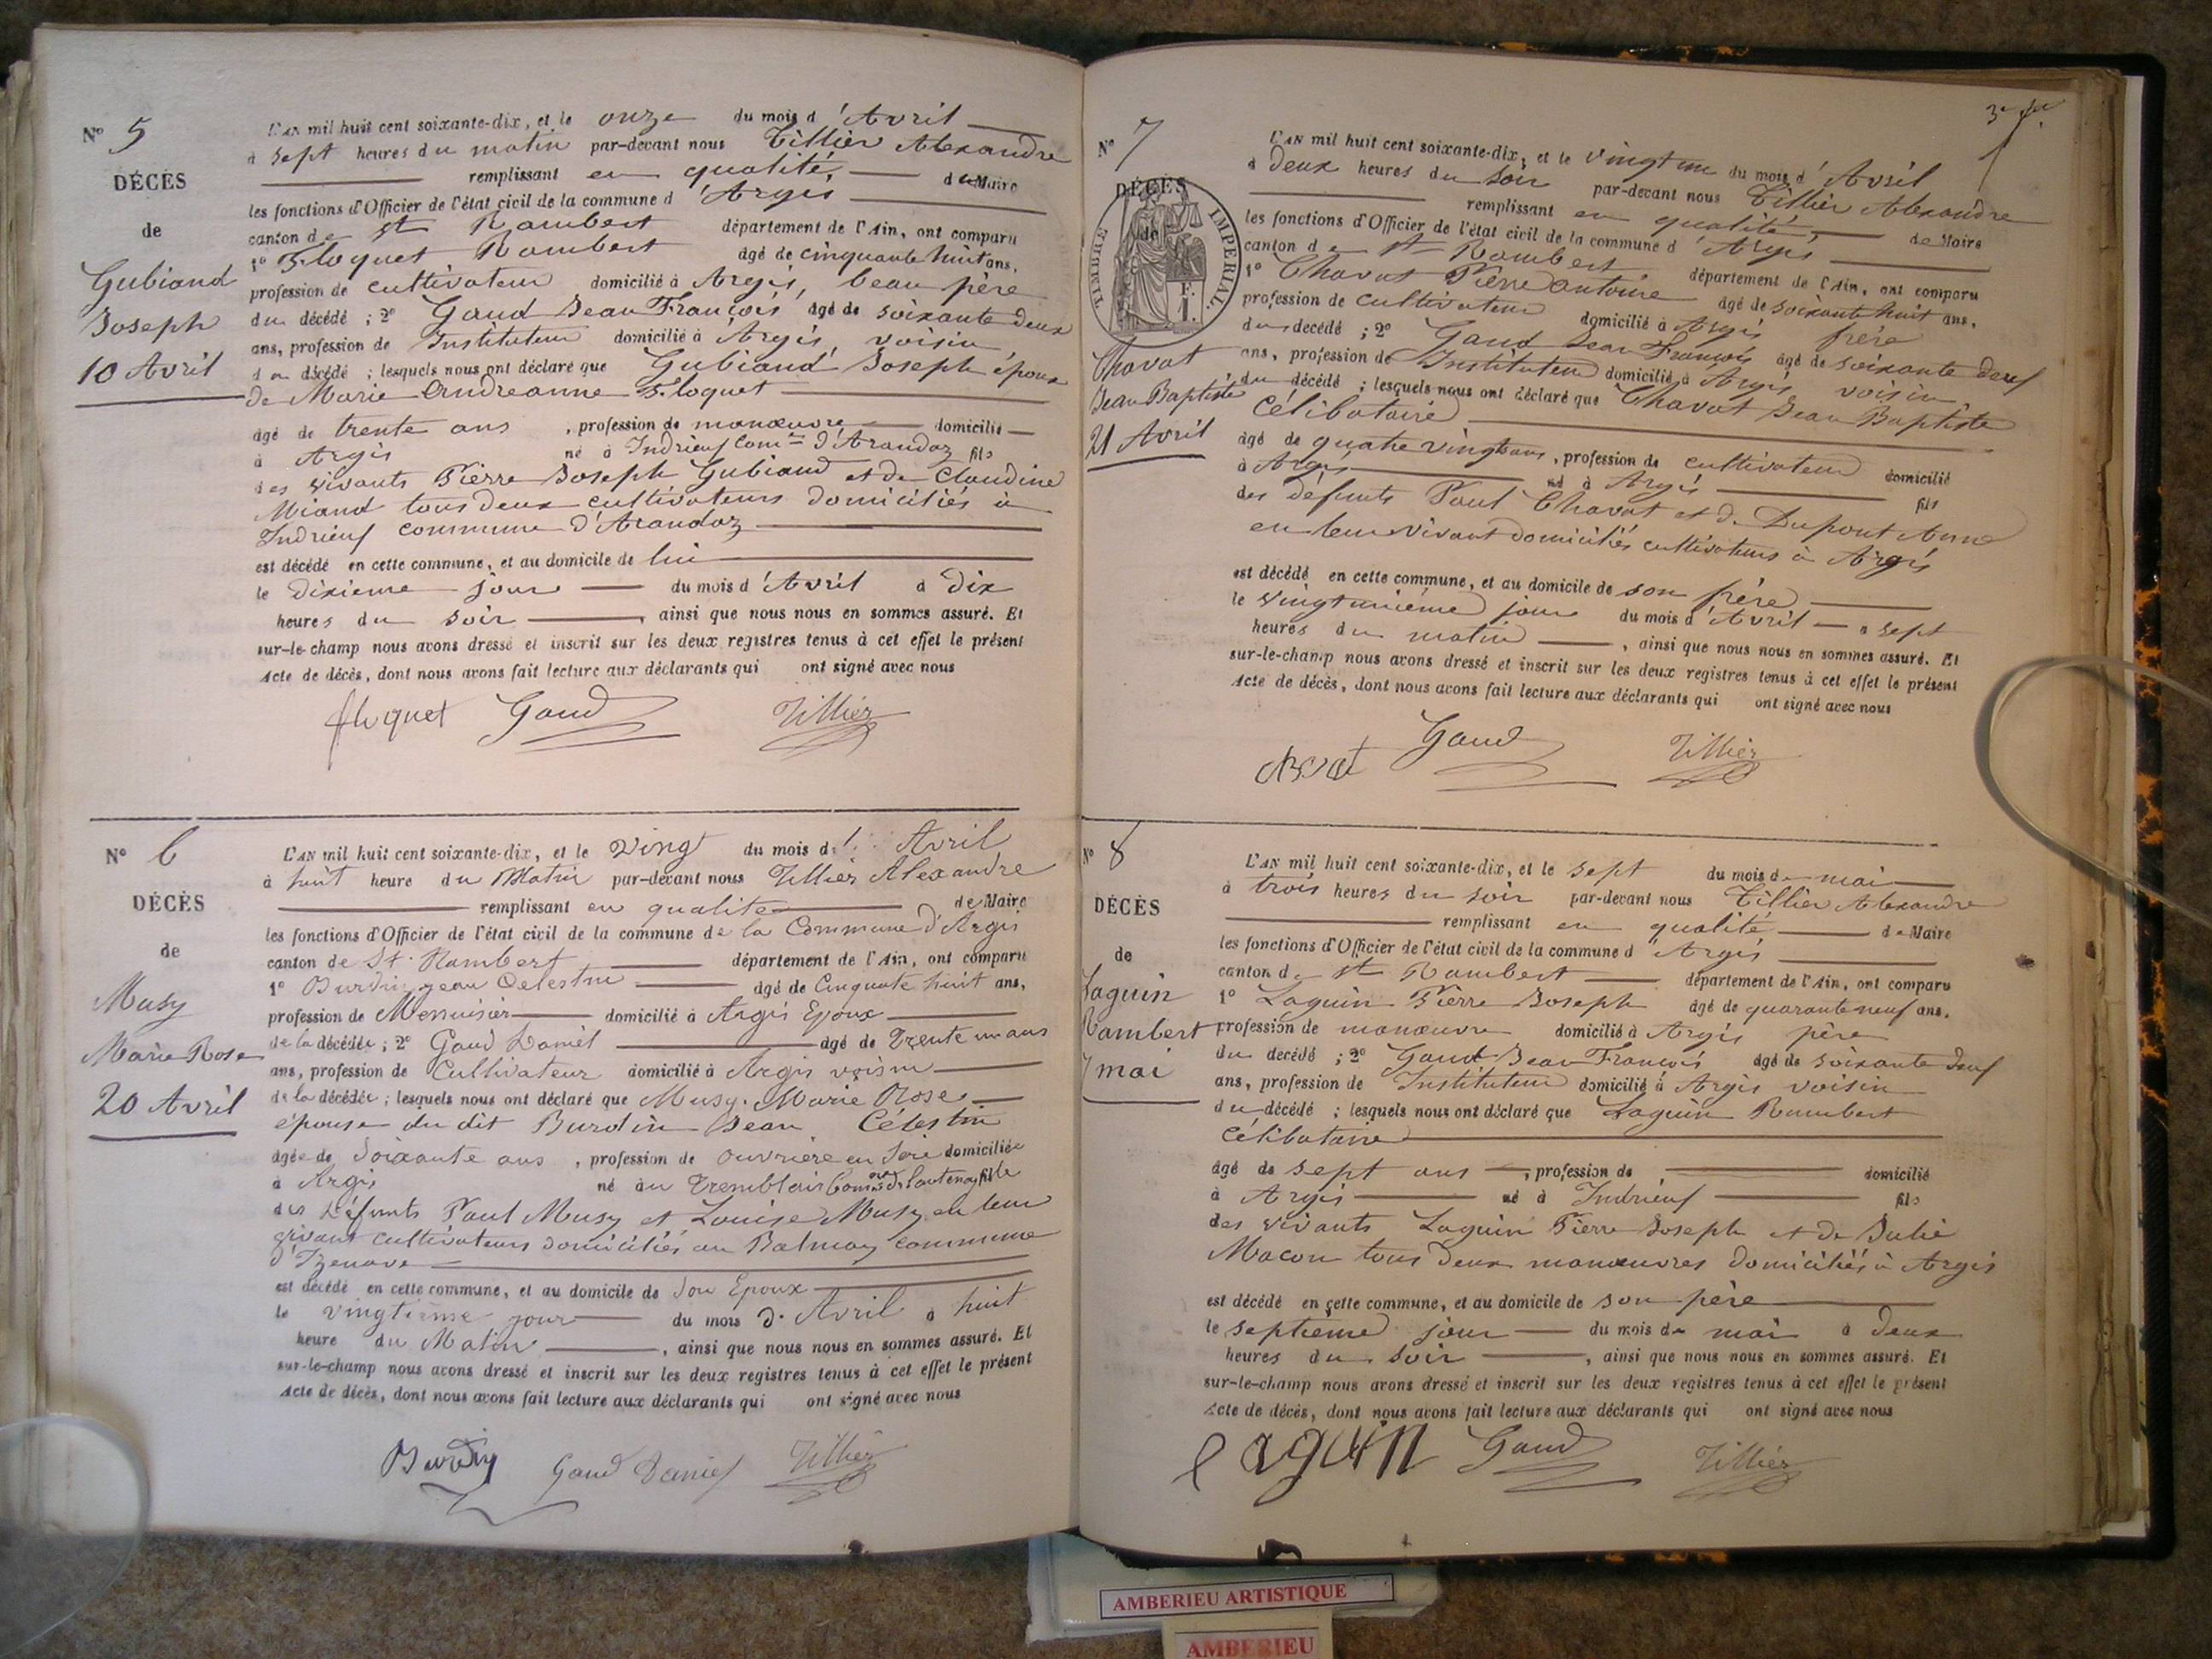 N° 5
DÉCÈS
de
Gubiand
Joseph
10 Avril
L'AN mil huit cent soixante-dix, et le onze du mois d'Avril
à sept heures du matin par-devant nous Tillier Alexandre
remplissant en qualité de Maire
les fonctions d'Officier de l'état civil de la commune d'Argis
canton de St Rambert département de l'Ain, ont comparu
1° Floquet Rambert âgé de cinquante huit ans,
profession de cultivateur domicilié à Argis, beau père
du décédé ; 2° Gaud Jean François âgé de soixante deux
ans, profession de Instituteur domicilié à Argis, voisin
du décédé ; lesquels nous ont déclaré que Gubiand Joseph époux
de Marie Andréanne Floquet
âgé de trente ans , profession de manœuvre domicilié
à Argis né à Indrieuf Comne d'Arandaz fils
des vivants Pierre Joseph Gubiand et de Claudine
Miand tous deux cultivateurs domiciliés à
Indrieuf commune d'Arandaz
est décédé en cette commune, et au domicile de lui
le dixième jour du mois d'Avril à dix
heures du soir , ainsi que nous nous en sommes assuré. Et
sur-le-champ nous avons dressé et inscrit sur les deux registres tenus à cet effet le présent
acte de décès, dont nous avons fait lecture aux déclarants qui ont signé avec nous
floquet Gaud Tillier
N° 6
DÉCÈS
de
Musy
Marie Rose
20 Avril
L'AN mil huit cent soixante-dix, et le Vingt du mois d' Avril
à huit heure du Matin par-devant nous Tillier Alexandre
remplissant en qualité de Maire
les fonctions d'Officier de l'état civil de la commune de la Commune d'Argis
canton de St. Rambert département de l'Ain, ont comparu
1° Burdin Jean Celestin âgé de Cinquante huit ans,
profession de Menuisier domicilié à Argis Epoux
de la décédée ; 2° Gaud Daniel âgé de Trente un ans
ans, profession de Cultivateur domicilié à Argis voisin
de la décédée ; lesquels nous ont déclaré que Musy Marie Rose
épouse du dit Burdin Jean Célestin
âgée de Soixante ans , profession de ouvrière en Soie domiciliée
à Argis né au Tremblais Comne de Lantenay fille
des défunts Paul Musy et Louise Musy en leur
vivant cultivateurs domiciliés au Balmay commune
d'Izenave
est décédé en cette commune, et au domicile de Son Epoux
le vingtième jour du mois d'Avril à huit
heure du Matin , ainsi que nous nous en sommes assuré. Et
sur-le-champ nous avons dressé et inscrit sur les deux registres tenus à cet effet le présent
acte de décès, dont nous avons fait lecture aux déclarants qui ont signé avec nous
Burdin Gaud Daniel Tillier
N° 7
DÉCÈS
de
TIMBRE IMPERIAL
F.
1.
Chavat
Jean Baptiste
21 Avril
L'AN mil huit cent soixante-dix, et le vingt un du mois d'Avril
à deux heures du soir par-devant nous Tillier Alexandre
remplissant en qualité de Maire
les fonctions d'Officier de l'état civil de la commune d'Argis
canton de St Rambert département de l'Ain, ont comparu
1° Chavat Pierre Antoine âgé de soixante huit ans,
profession de cultivateur domicilié à Argis frère
du décédé ; 2° Gaud Jean François âgé de soixante deux
ans, profession de Instituteur domicilié à Argis voisin,
du décédé ; lesquels nous ont déclaré que Chavat Jean Baptiste
Célibataire
âgé de quatre vingt ans , profession de cultivateur domicilié
à Argis né à Argis fils
des défunts Paul Chavat et de Dupont Anne
en leur vivant domiciliés cultivateurs à Argis
est décédé en cette commune, et au domicile de son frère
le vingtunième jour du mois d'Avril à sept
heures du matin , ainsi que nous nous en sommes assuré. Et
sur-le-champ nous avons dressé et inscrit sur les deux registres tenus à cet effet le présent
acte de décès, dont nous avons fait lecture aux déclarants qui ont signé avec nous
Gaud Tillier
N° 8
DÉCÈS
de
Laguin
Rambert
7 mai
L'AN mil huit cent soixante-dix, et le sept du mois de mai
à trois heures du soir par-devant nous Tillier Alexandre
remplissant en qualité de Maire
les fonctions d'Officier de l'état civil de la commune d'Argis
canton de St Rambert département de l'Ain, ont comparu
1° Laguin Pierre Joseph âgé de quarante neuf ans,
profession de manœuvre domicilié à Argis père
du décédé ; 2° Gaud Jean François âgé de soixante deux
ans, profession de Instituteur domicilié à Argis voisin
du décédé ; lesquels nous ont déclaré que Laguin Rambert
célibataire
âgé de sept ans , profession de domicilié
à Argis né à Indrieuf fils
des vivants Laguin Pierre Joseph et de Julie
Macon tous deux manœuvres domiciliés à Argis
est décédé en cette commune, et au domicile de son père
le septième jour du mois de mai à deux
heures du soir , ainsi que nous nous en sommes assuré. Et
sur-le-champ nous avons dressé et inscrit sur les deux registres tenus à cet effet le présent
acte de décès, dont nous avons fait lecture aux déclarants qui ont signé avec nous
laguin Gaud Tillier
AMBERIEU ARTISTIQUE
AMBERIEU